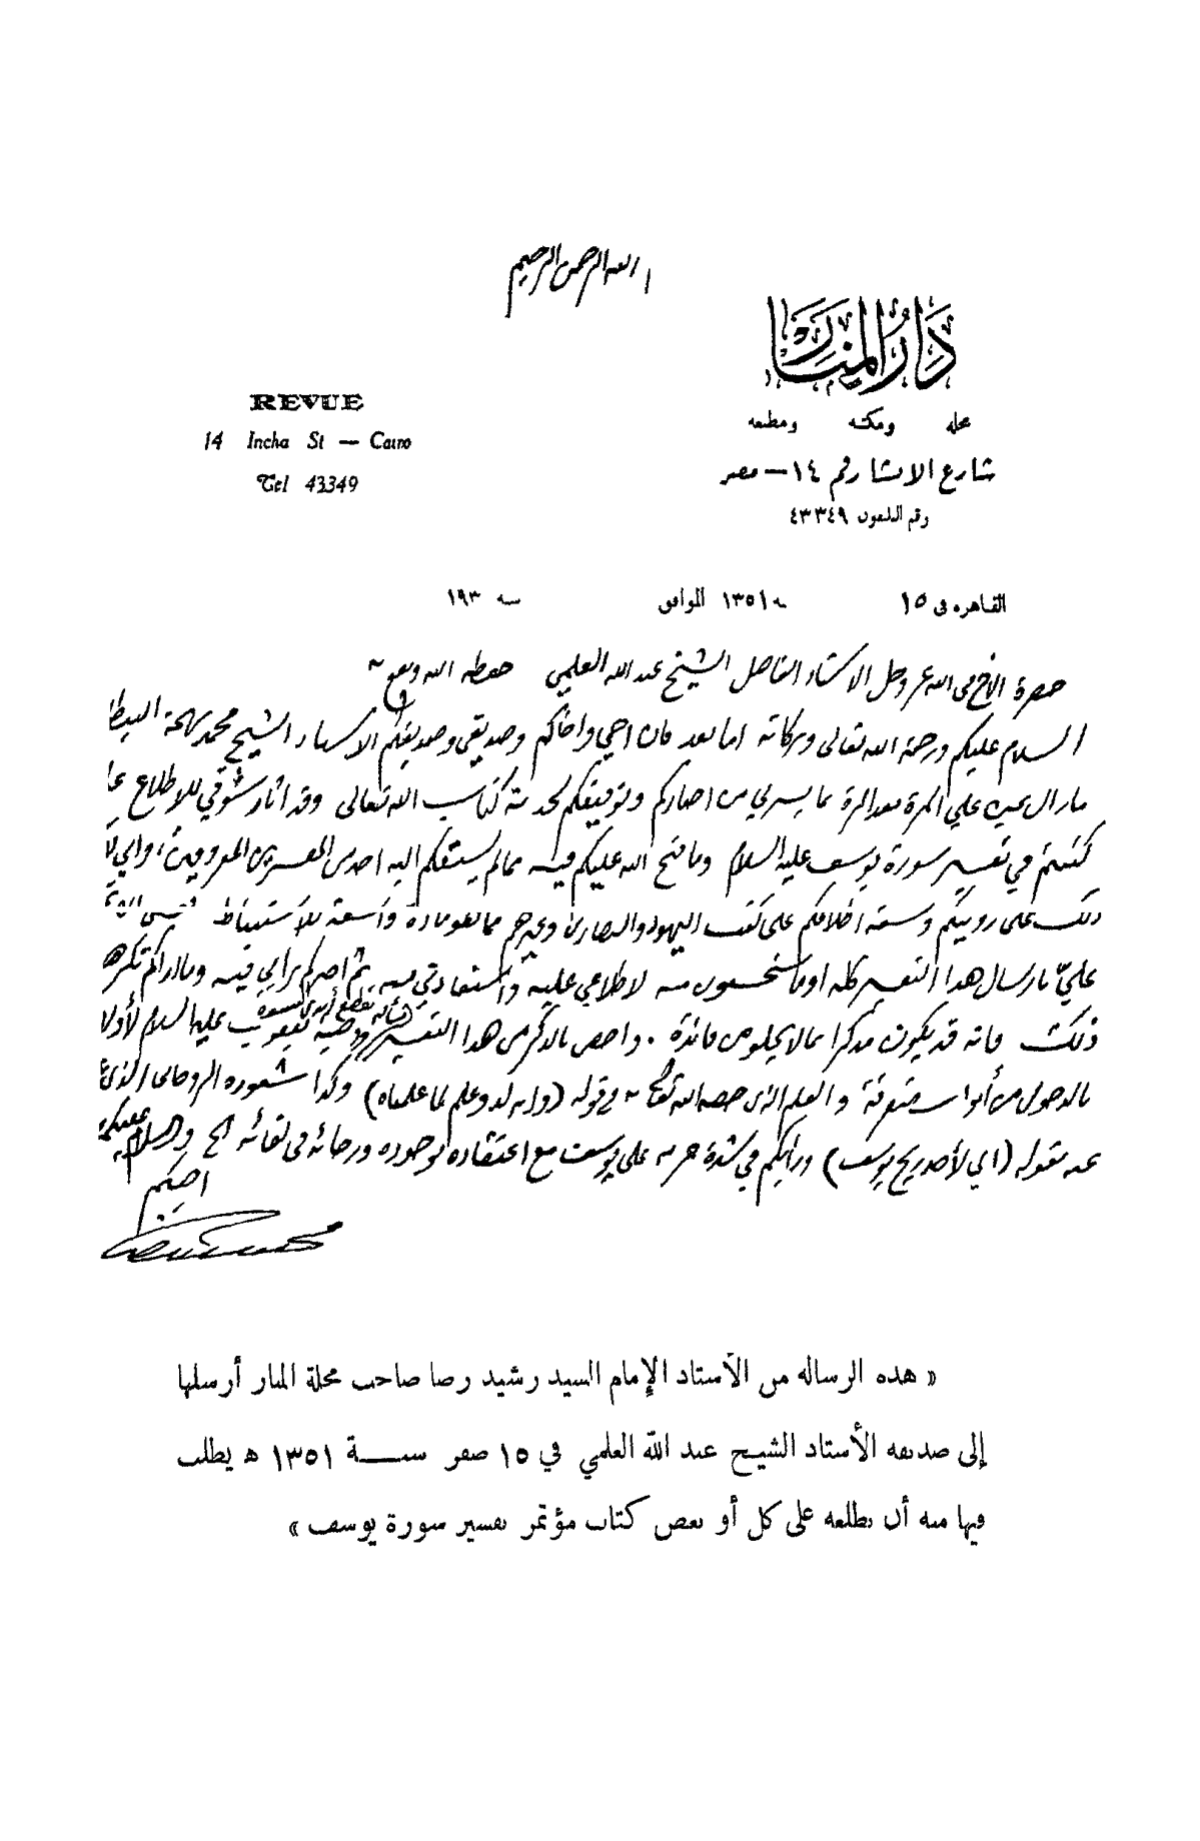 الله الرحمن الرحيم
دَارُ المنَار
مجلة ومكتبة ومطبعة
شارع الانشا رقم ١٤ — مصر
رقم التلفون ٤٣٣٤٩
REVUE
14 Incha St — Cairo
Tel 43349
القاهرة في ١٥ سنة ١٣٥١ الموافق سنة ١٩٣
حضرة الأخ في الله عز وجل الاستاذ الفاضل الشيخ عبد الله العلمي حفظه الله ونفع به
السلام عليكم ورحمة الله تعالى وبركاته اما بعد فان اخي واخاكم وصديقي وصديقكم الاستاذ الشيخ محمد بهجة البيطا
ما زال علي المرة بعد المرة بما يسرني من اخباركم وتوفيقكم لخدمة كتاب الله تعالى وقد اثار شوقي للاطلاع على
كتبتم في تفسير سورة يوسف عليه السلام وما فتح الله عليكم فيه مما لم يسبقكم اليه احد من المفسرين المعروفين،
ذلك على رويتكم وسعة اطلاعكم على كتب اليهود والنصارى وغيرهم مما هو مادة واسعة للاستنباط
عليّ بارسال هذا التفسير كله او ما تستحسنون منه لاطلاعي عليه واستفادتي منه ثم اخبركم برأيي فيه وما اراكم تكرهو
ذلك فانه قد يكون مذكرا بما لا يخلو من فائدة . واخص بالذكر من هذا التفسير مسألة تقطيع أيدي النسوة ووصية يعقوب عليه السلام لأولا
بالدخول من أبواب متفرقة والعلم الذي خصه الله تعالى به في قوله (وانه لذو علم لما علمناه) وكذا شعوره الروحاني الذي
عنه بقوله (اني لأجد ريح يوسف) ورأيكم في شدة حزنه على يوسف مع اعتقاده بوجوده ورجائه في لقائه الخ والسلام عليكم
اخيكم
محمد رشيد رضا
« هذه الرسالة من الأستاذ الإمام السيد رشيد رضا صاحب مجلة المنار أرسلها
إلى صديقه الأستاذ الشيخ عبد الله العلمي في ١٥ صفر سنة ١٣٥١ هـ يطلب
فيها منه أن يطلعه على كل أو بعض كتاب مؤتمر تفسير سورة يوسف »